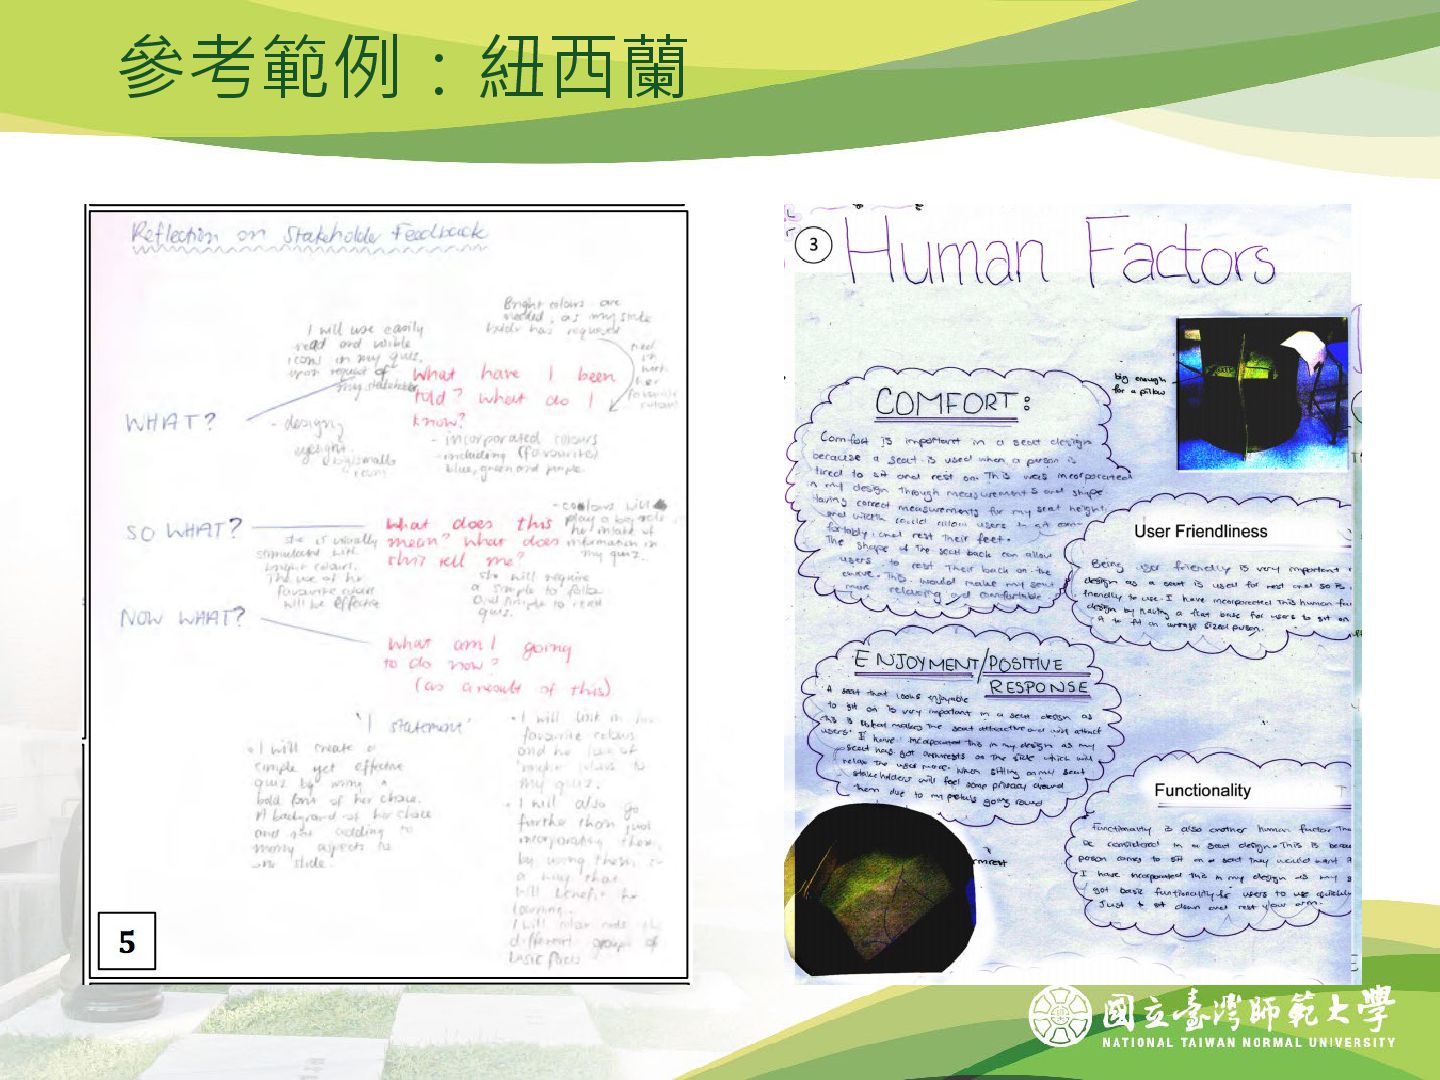 參考範例：紐西蘭
Reflection on Stakeholder Feedback
Bright colours are
needed, as my stake
holder has requested
I will use easily
read and visible
icons in my quiz,
upon request of
my stakeholder
tied
in
with
her
favourite
colour
What have I been
told? what do I
know?
WHAT?
- designing
eyesight
big/smalls
room
- incorporated colours
- including (favourite)
blue, green and purple
SO WHAT?
What does this
mean? what does
this tell me?
- colours will
play a big role
her intake of
information in
my quiz.
she is visually
stimulated with
bright colours.
The use of her
favourite colours
will be effective
she will require
a simple to follow
and simple to read
quiz.
NOW WHAT?
What am I going
to do now?
(as a result of this)
'I statement'
• I will create a
simple yet effective
quiz by using a
bold font of her choice.
A background of her choice
and not adding to
many aspects to
one slide.
• I will link in her
favourite colours
and her love of
bright colours to
my quiz.
• I will also go
further than just
incorporating them,
by using them in
a way that
will benefit her
learning.
I will colour code the
different groups of
basic facts
5
3
Human Factors
big enough
for a pillow
COMFORT:
Comfort is important in a seat design
because a seat is used when a person is
tired to sit and rest on. This was incorporated
in my design through measurements and shape.
Having correct measurements for my seat height
and width could allow users to sit com-
fortably and rest their feet.
The shape of the seat back can allow
users to rest their back on the
curve. This would make my seat
more relaxing and comfortable
User Friendliness
Being user friendly is very important
design as a seat is used for rest and so is
friendly to use. I have incorporated this human fac
design by having a flat base for users to sit on
to fit an average sized person.
ENJOYMENT/POSITIVE
RESPONSE
A seat that looks enjoyable
to sit on is very important in a seat design as
this is what makes the seat attractive and will attract
users. I have incorporated this in my design as my
seat has got armrests on the side which will
relax the user more. When sitting on my seat
stakeholders will feel some privacy around
them due to my petals going round
armrest
Functionality
Functionality is also another human factor that
be considered in a seat design. This is beca
person comes to sit on a seat they would want
I have incorporated this in my design as my s
got basic functionality for users to use quickly
Just to sit down and rest your arm.
國立臺灣師範大學
NATIONAL TAIWAN NORMAL UNIVERSITY